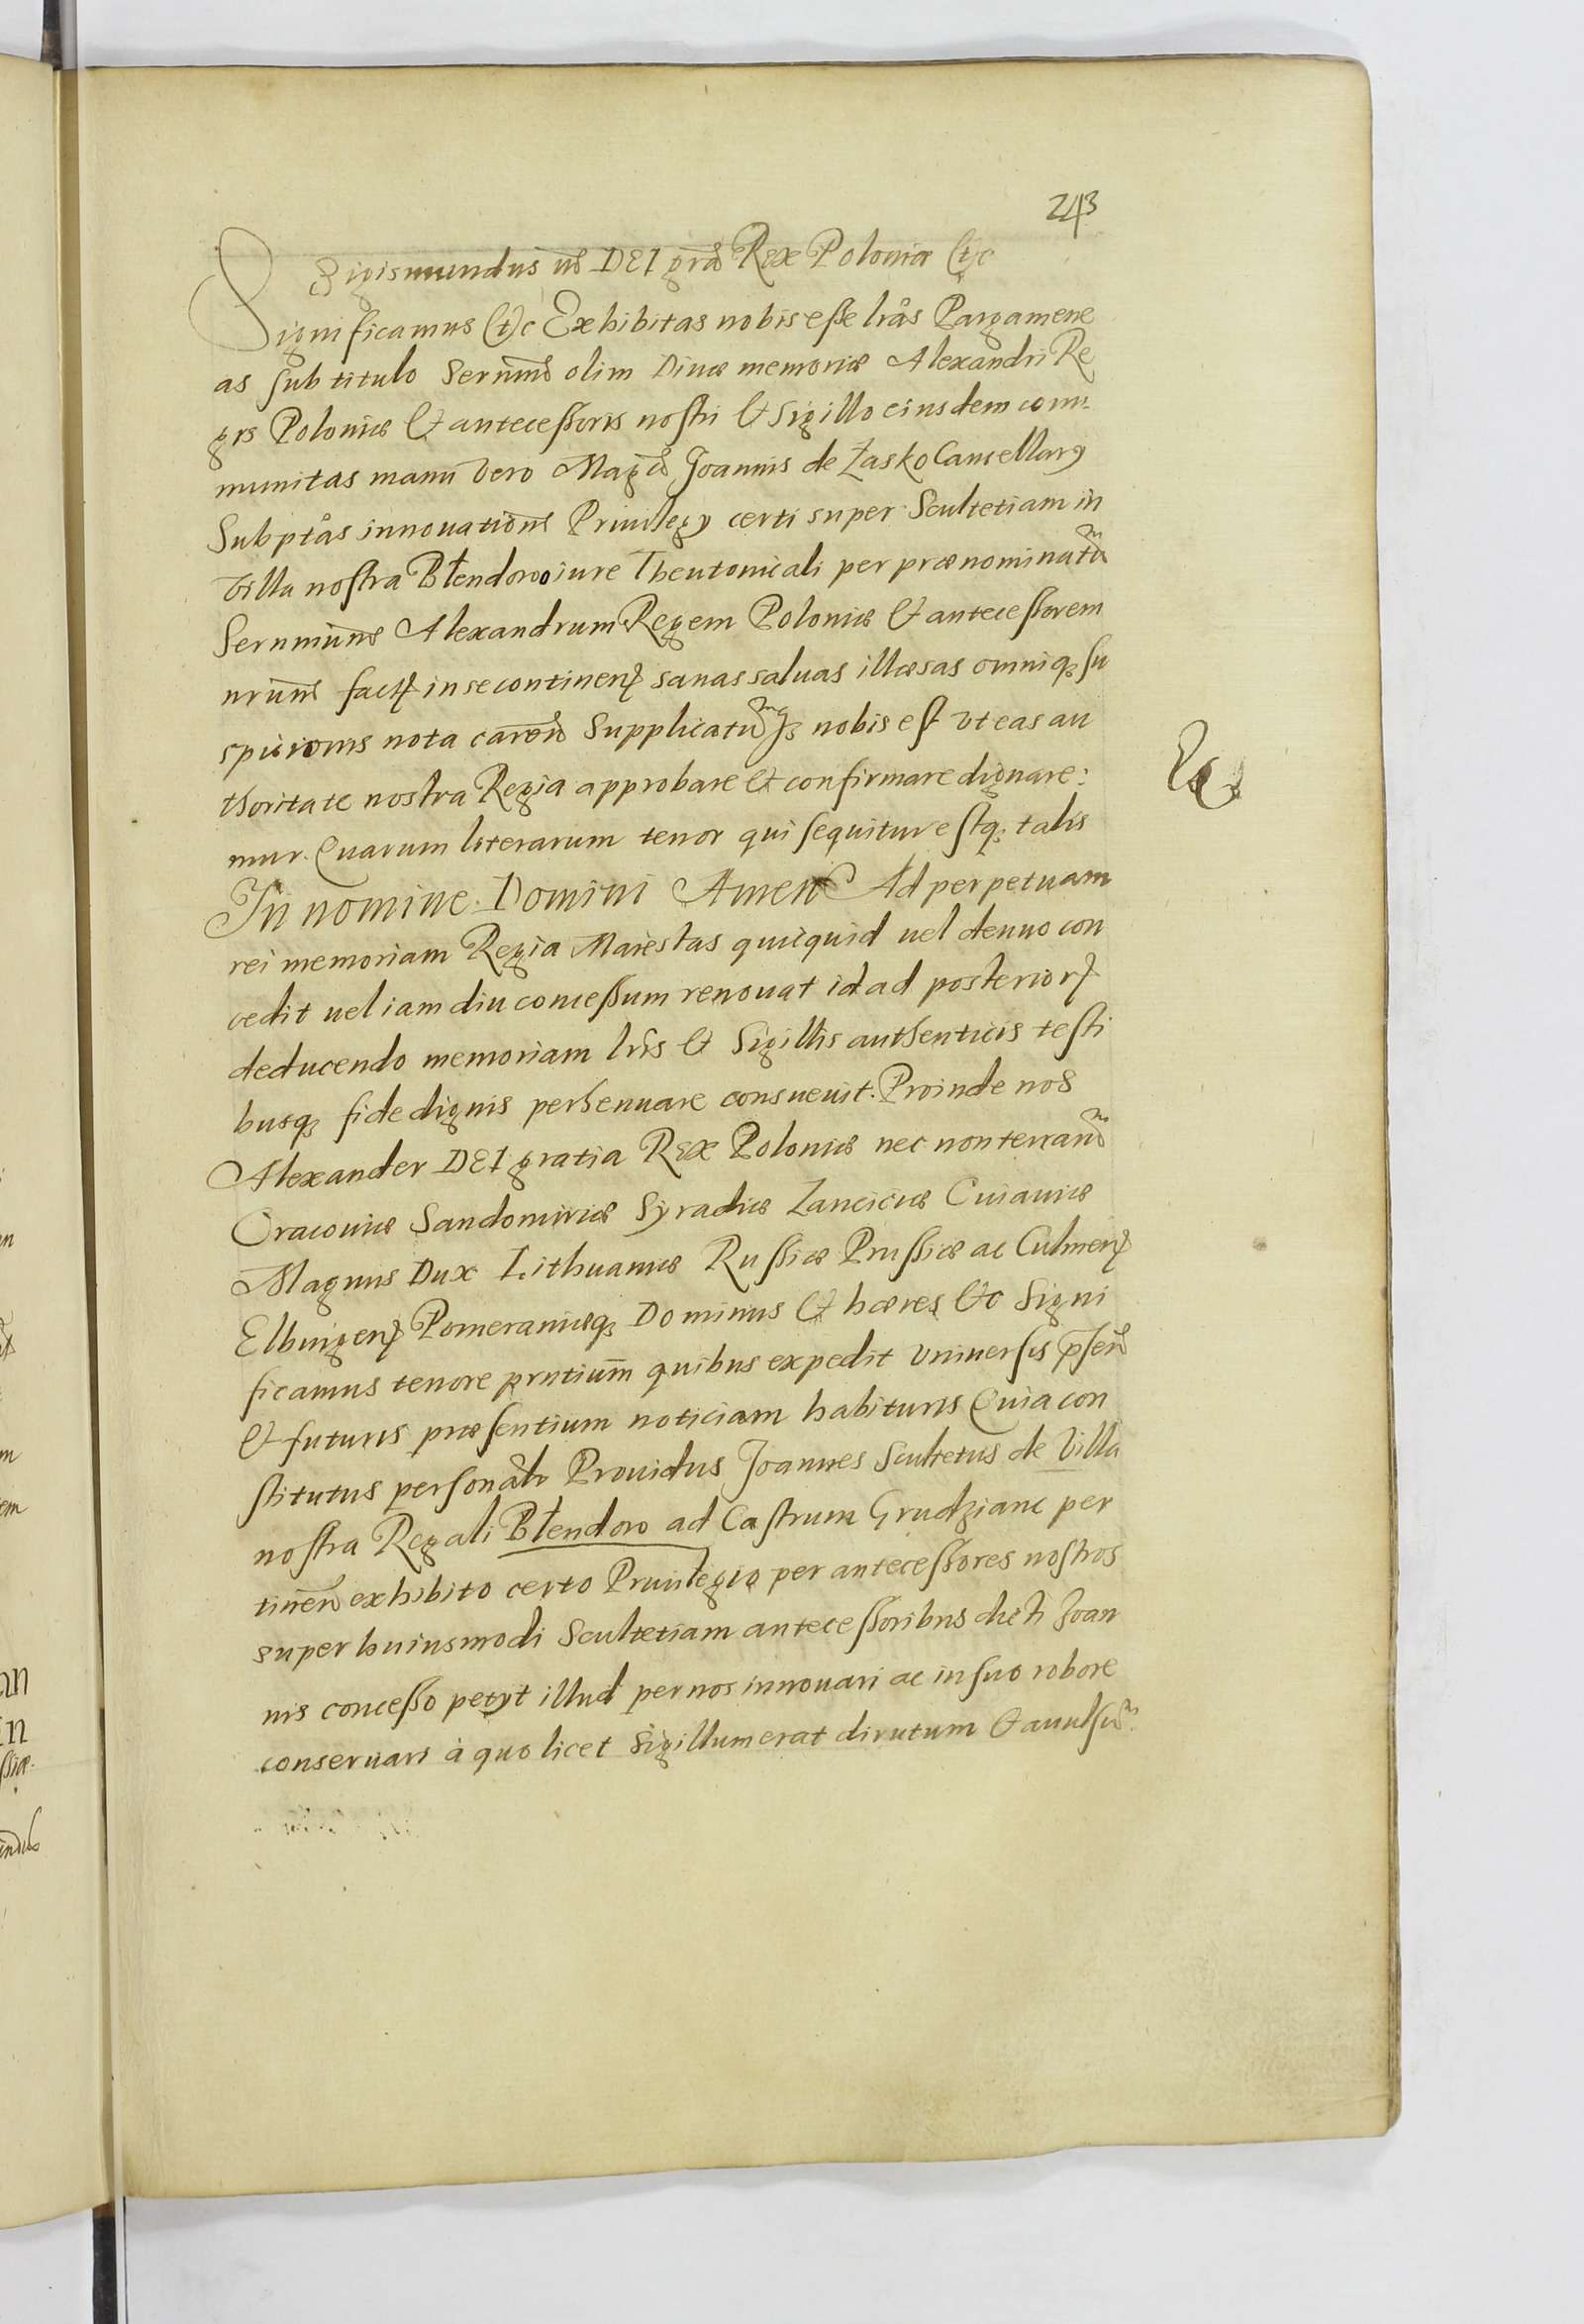 243
Sigismundus iis DEI gra Rex Poloniæ etc
Significamus etc Exhibitas nobis esse lras Pargamene
as sub titulo Sernmi olim Divæ memoriæ Alexandri Re
gis Poloniæ & antecessoris nostri & Sigillo eiusdem com
munitas manu vero Magci Joannis de Łasko Cancellarÿ
Subptas innovationē Privilegÿ certi super Scultetiam in
villa nostra Błendowo iure Theutonicali per prænominatū
Sernmum Alexandrum Regem Poloniæ & antecessorem
nrum fact in se continen sanas salvas illæsas omniq su
spicionis nota caren Supplicatūq nobis est vt eas au
thoritate nostra Regia approbare & confirmare dignare:
mur. Quarum literarum tenor qui sequitur estq talis
In nomine Domini Amen Ad perpetuam
rei memoriam Regia Maiestas quicquid vel denuo con
cedit vel iam diu concessum renovat id ad posterior
deducendo memoriam lris & Sigillis authenticis testi
busq fide dignis perhennare consuevit. Proinde nos
Alexander DEI gratia Rex Poloniæ nec non terrarū
Cracoviæ Sandomiriæ Syradiæ Lanciciæ Cuiaviæ
Magnus Dux Lithuaniæ Russiæ Prussiæ ac Culmen
Elbingen Pomeraniæq Dominus & hæres &c Signi
ficamus tenore prntium quibus expedit vniversis psen
& futuris præsentium noticiam habituris Quia con
stitutus personalr Providus Joannes Scultetus de villa
nostra Regali Błendowo ad Castrum Grudzianc per
tinen exhibito certo Privilegio per antecessores nostros
super huiusmodi Scultetiam antecessoribus dicti Joan
nis concesso petÿt illud per nos innovari ac in suo robore
conservari à quo licet Sigillum erat dirutum & avulsū